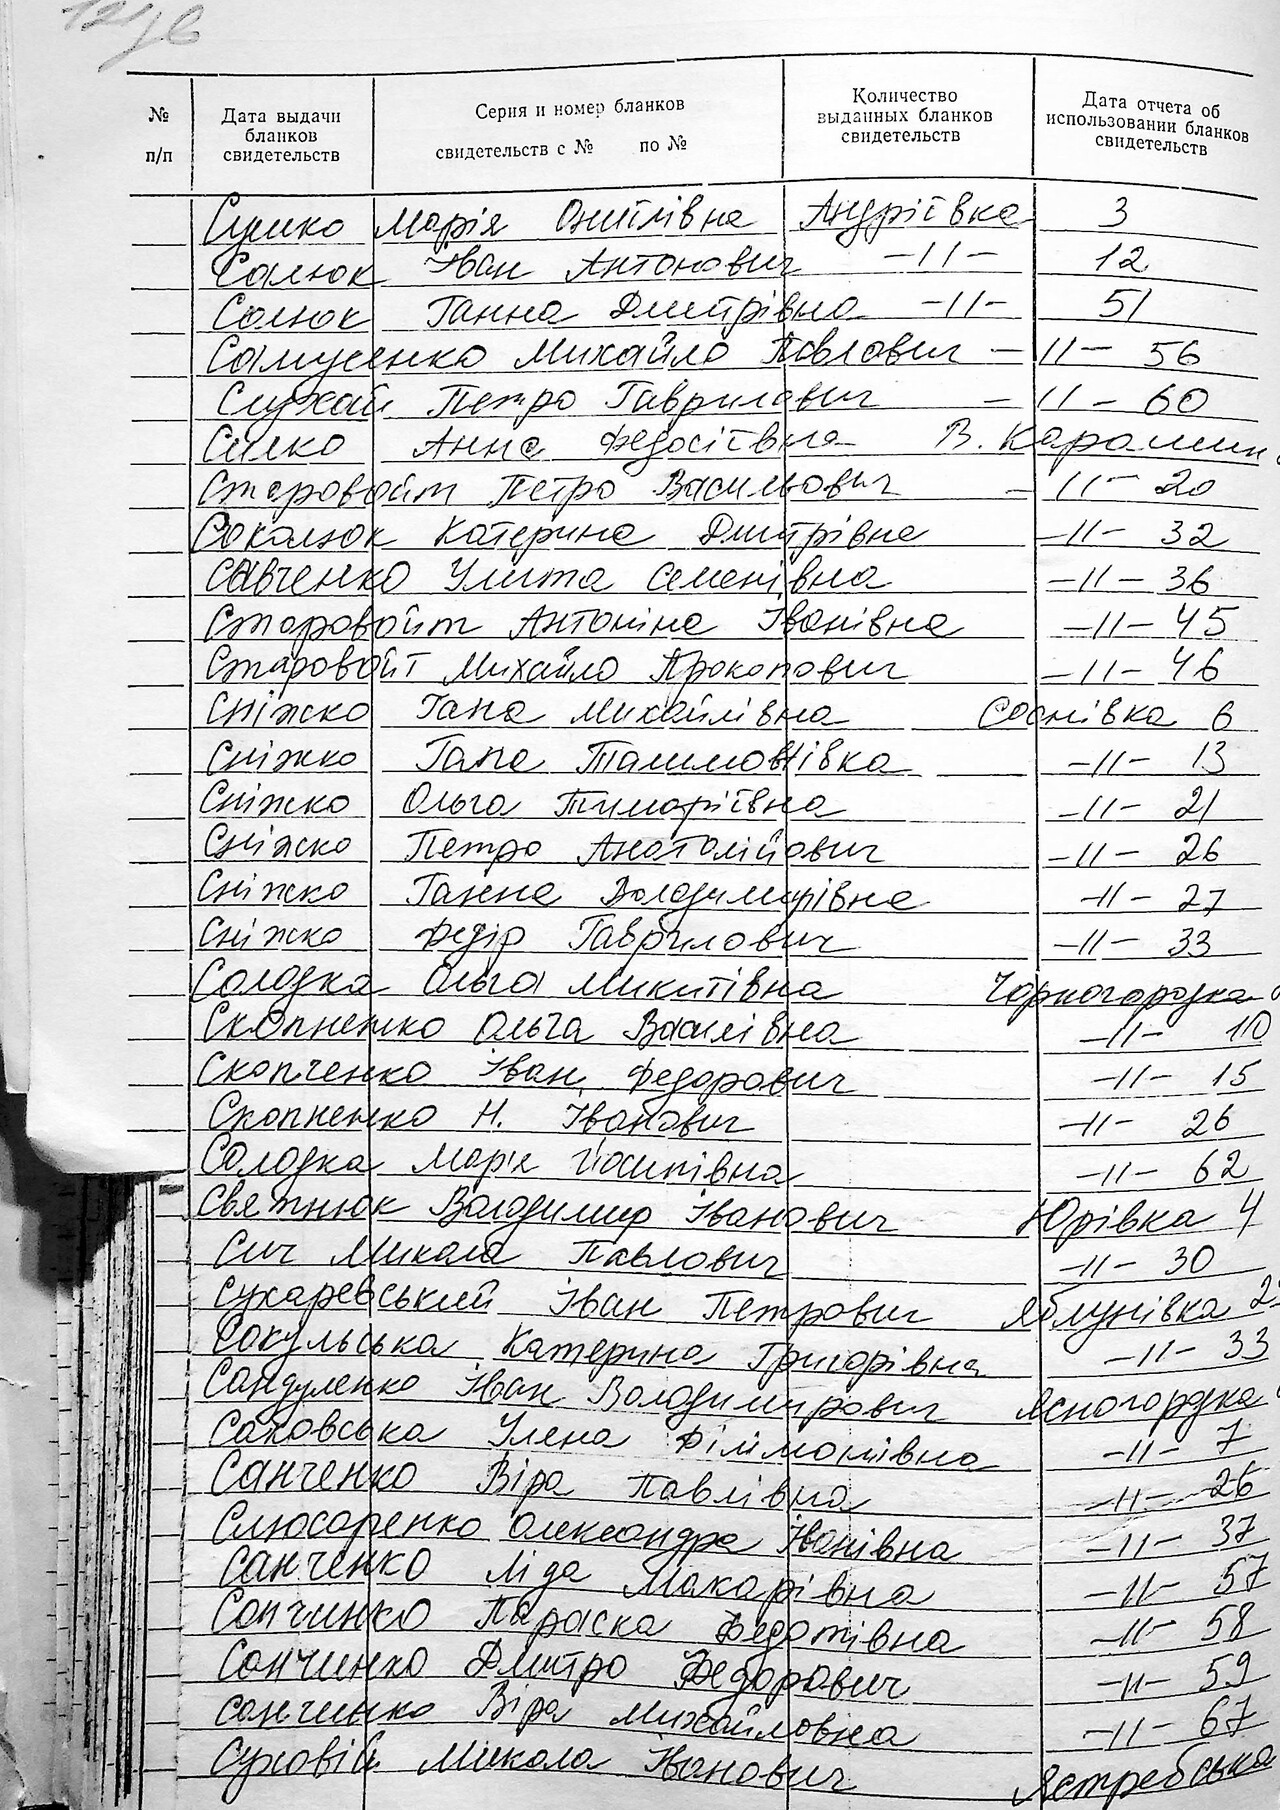 № п/п
Дата выдачи бланков свидетельств
Серия и номер бланков свидетельств с № по №
Количество выданных бланков свидетельств
Дата отчета об использовании бланков свидетельств
Марія Андріївка 3
Салюк Іван Антонович -11- 12
Салюк Ганна Дмитрівна -11- 51
Самусенко Михайло Павлович -11- 56
Слухай Петро Гаврилович -11- 60
Анна Федосіївна В. Карашин
Старовойт Петро Васильович -11- 20
Сокалюк Катерина Дмитрівна -11- 32
Савченко Улита Семенівна -11- 36
Старовойт Антоніна Іванівна -11- 45
Старовойт Михайло Прокопович -11- 46
Сніжко Гапа Михайлівна Соснівка 6
Сніжко Гапа -11- 13
Сніжко Ольга -11- 21
Сніжко Петро Анатолійович -11- 26
Сніжко Ганна Володимирівна -11- 27
Сніжко Федір Гаврилович -11- 33
Солодка Ольга Микитівна Чорногородка
Скопненко Ольга Василівна -11- 10
Скопченко Іван Федорович -11- 15
Скопненко Н. Іванович -11- 26
Солодка Марія Йосипівна -11- 62
Святнюк Володимир Іванович Юрівка 4
Сич Микола Павлович -11- 30
Сухаревський Іван Петрович Яблунівка
Сокульська Катерина Григорівна -11- 33
Сандуленко Іван Володимирович Ясногородка
Саковська Улена Філімонівна -11- 7
Санченко Віра Павлівна -11- 26
Слюсаренко Олександра Іванівна -11- 37
Санченко Ліда Макарівна -11- 57
Сапчинко Параска Федотівна -11- 58
Санчинко Дмитро Федорович -11- 59
Санчинко Віра Михайловна -11- 67
Суховій Микола Іванович Ястребська